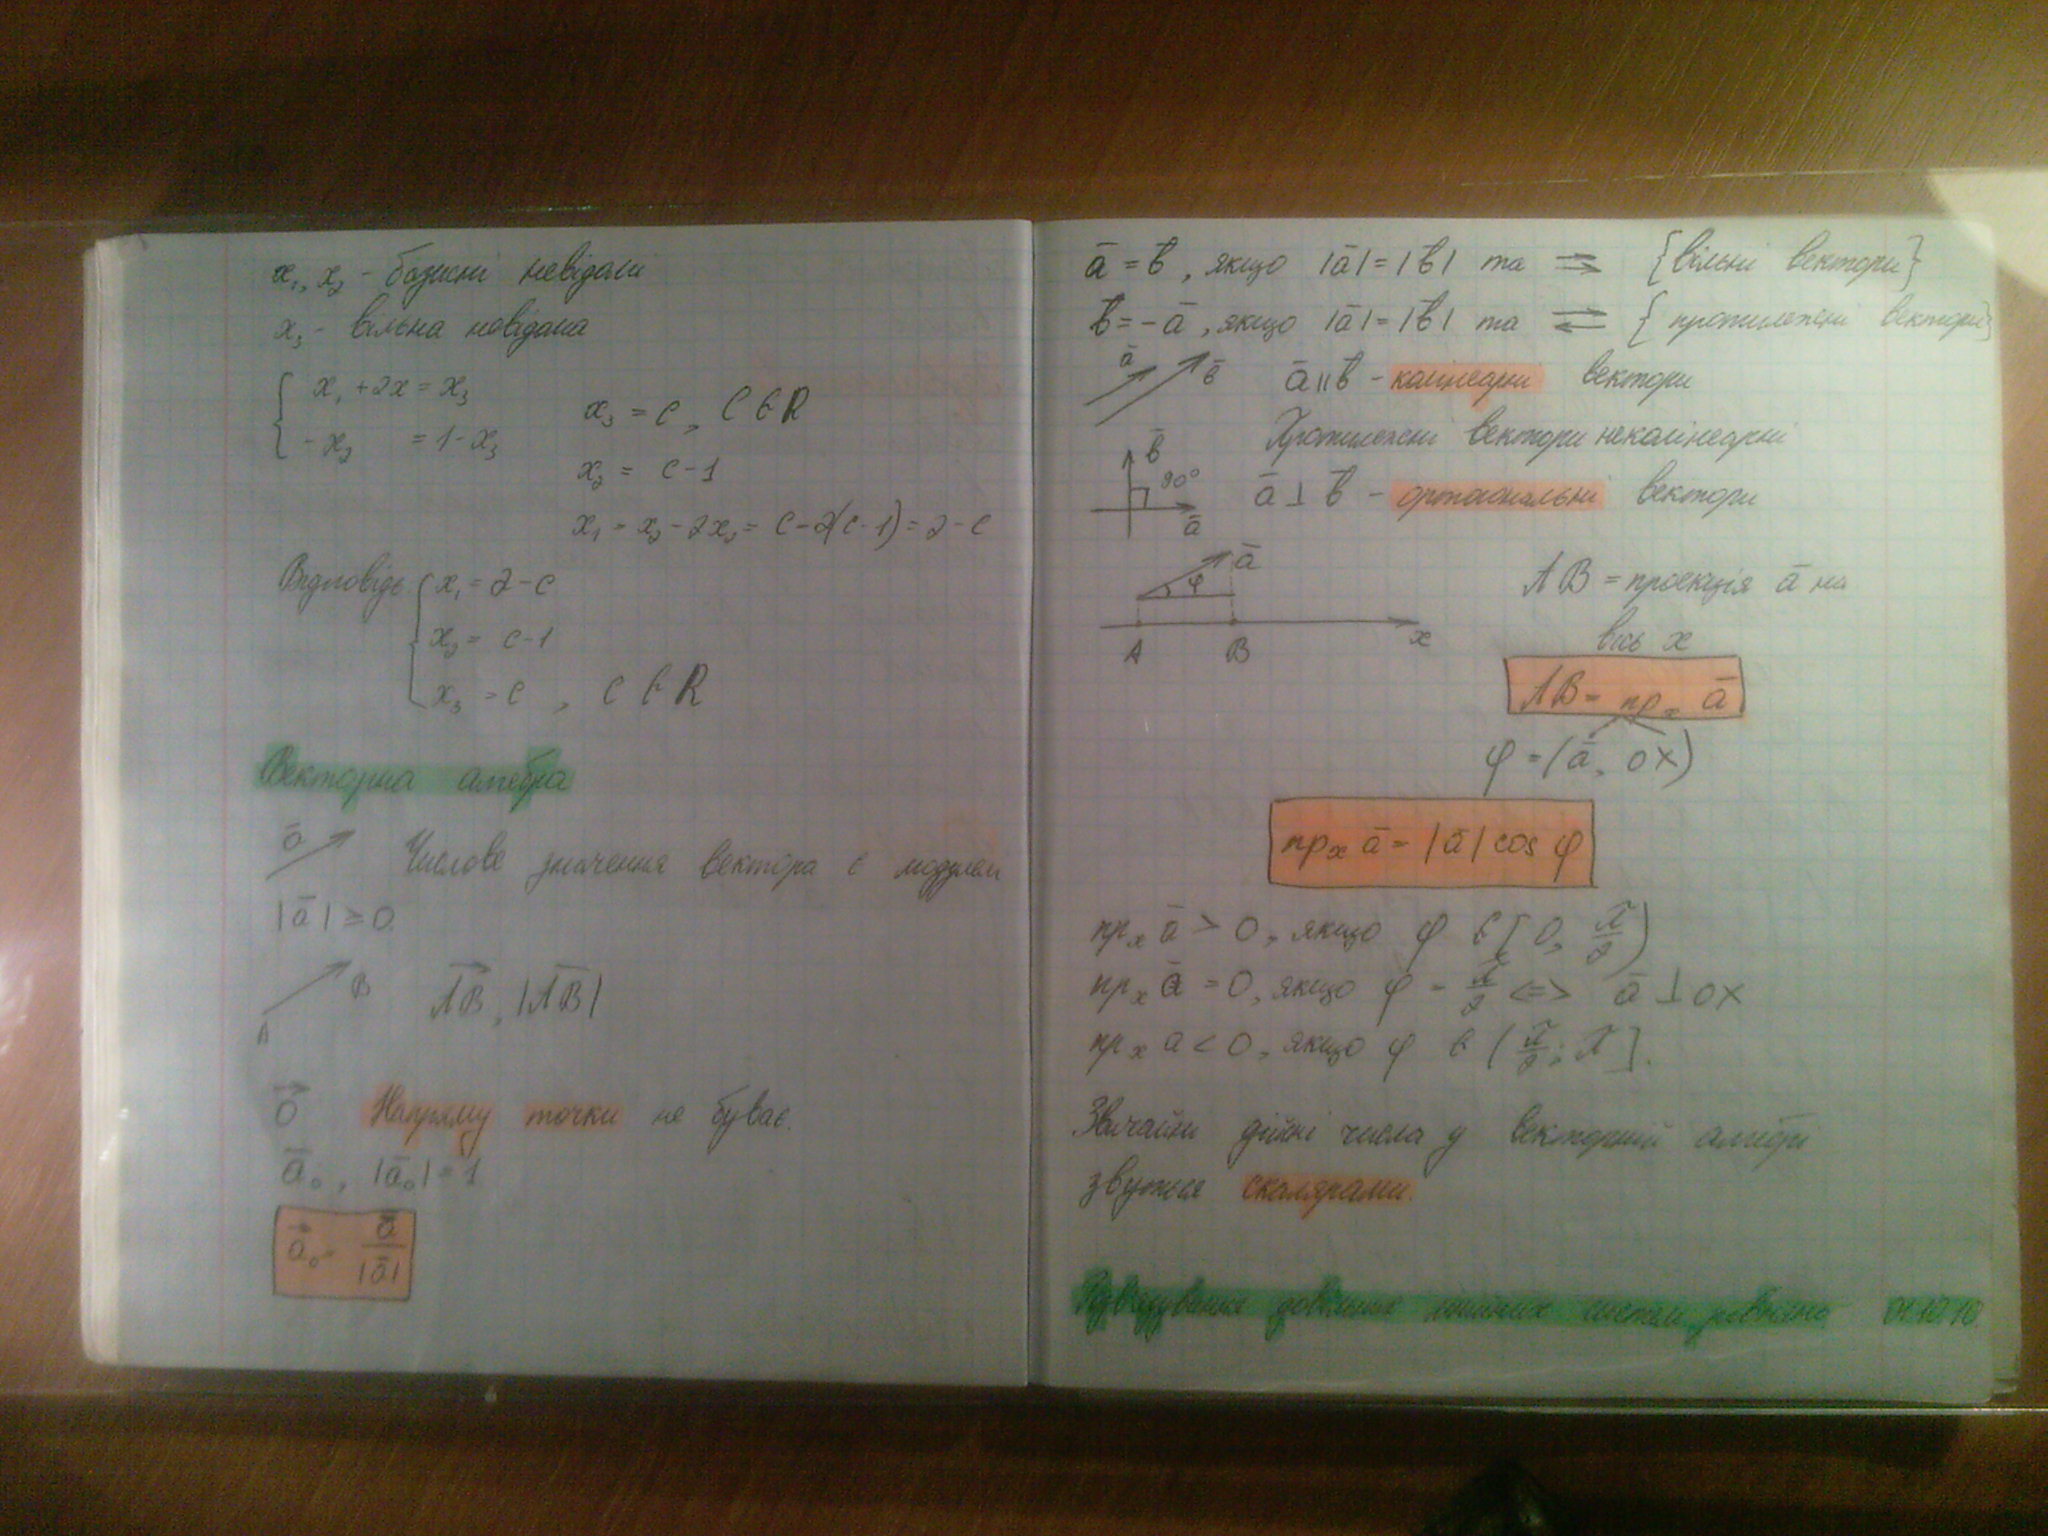 x₁, x₂ - базисні невідомі
x₃ - вільна невідома
{ x₁ + 2x = x₃
-x₂ = 1 - x₃
x₃ = c, c ∈ R
x₂ = c - 1
x₁ = x₃ - 2x₂ = c - 2(c - 1) = 2 - c
Відповідь { x₁ = 2 - c
x₂ = c - 1
x₃ = c, c ∈ R
Векторна алгебра
a̅ Числове значення вектора є модулем
|a̅| ≥ 0
A B A⃗B⃗, |A̅B̅|
0⃗ Напряму точки не буває.
a̅₀, |a̅₀| = 1
a⃗₀ = a̅/|a̅|
a̅ = b̅, якщо |a̅| = |b̅| та ⇉ {вільні вектори}
b̅ = -a̅, якщо |a̅| = |b̅| та ⇄ {протилежні вектори}
a̅ b̅ a̅ || b̅ - колінеарні вектори
Протилежні вектори неколінеарні
b̅ 90° a̅ a̅ ⊥ b̅ - ортогональні вектори
a̅ φ A B x
AB = проекція a̅ на
вісь x
AB = прₓ a̅
φ = (a̅, OX)
прₓ a̅ = |a̅| cos φ
прₓ a̅ > 0, якщо φ ∈ [0, π/2)
прₓ a̅ = 0, якщо φ = π/2 <=> a̅ ⊥ OX
прₓ a < 0, якщо φ ∈ (π/2; π].
Звичайні дійсні числа у векторній алгебрі
звуться скалярами.
Розв'язування довільних лінійних систем рівнянь 01.10.10.